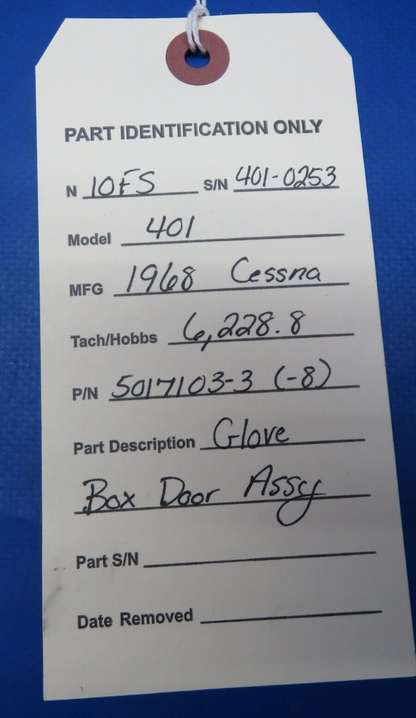 PART IDENTIFICATION ONLY
N 10FS S/N 401-0253
Model 401
MFG 1968 Cessna
Tach/Hobbs 6,228.8
P/N 5017103-3 (-8)
Part Description Glove
Box Door Assy
Part S/N
Date Removed